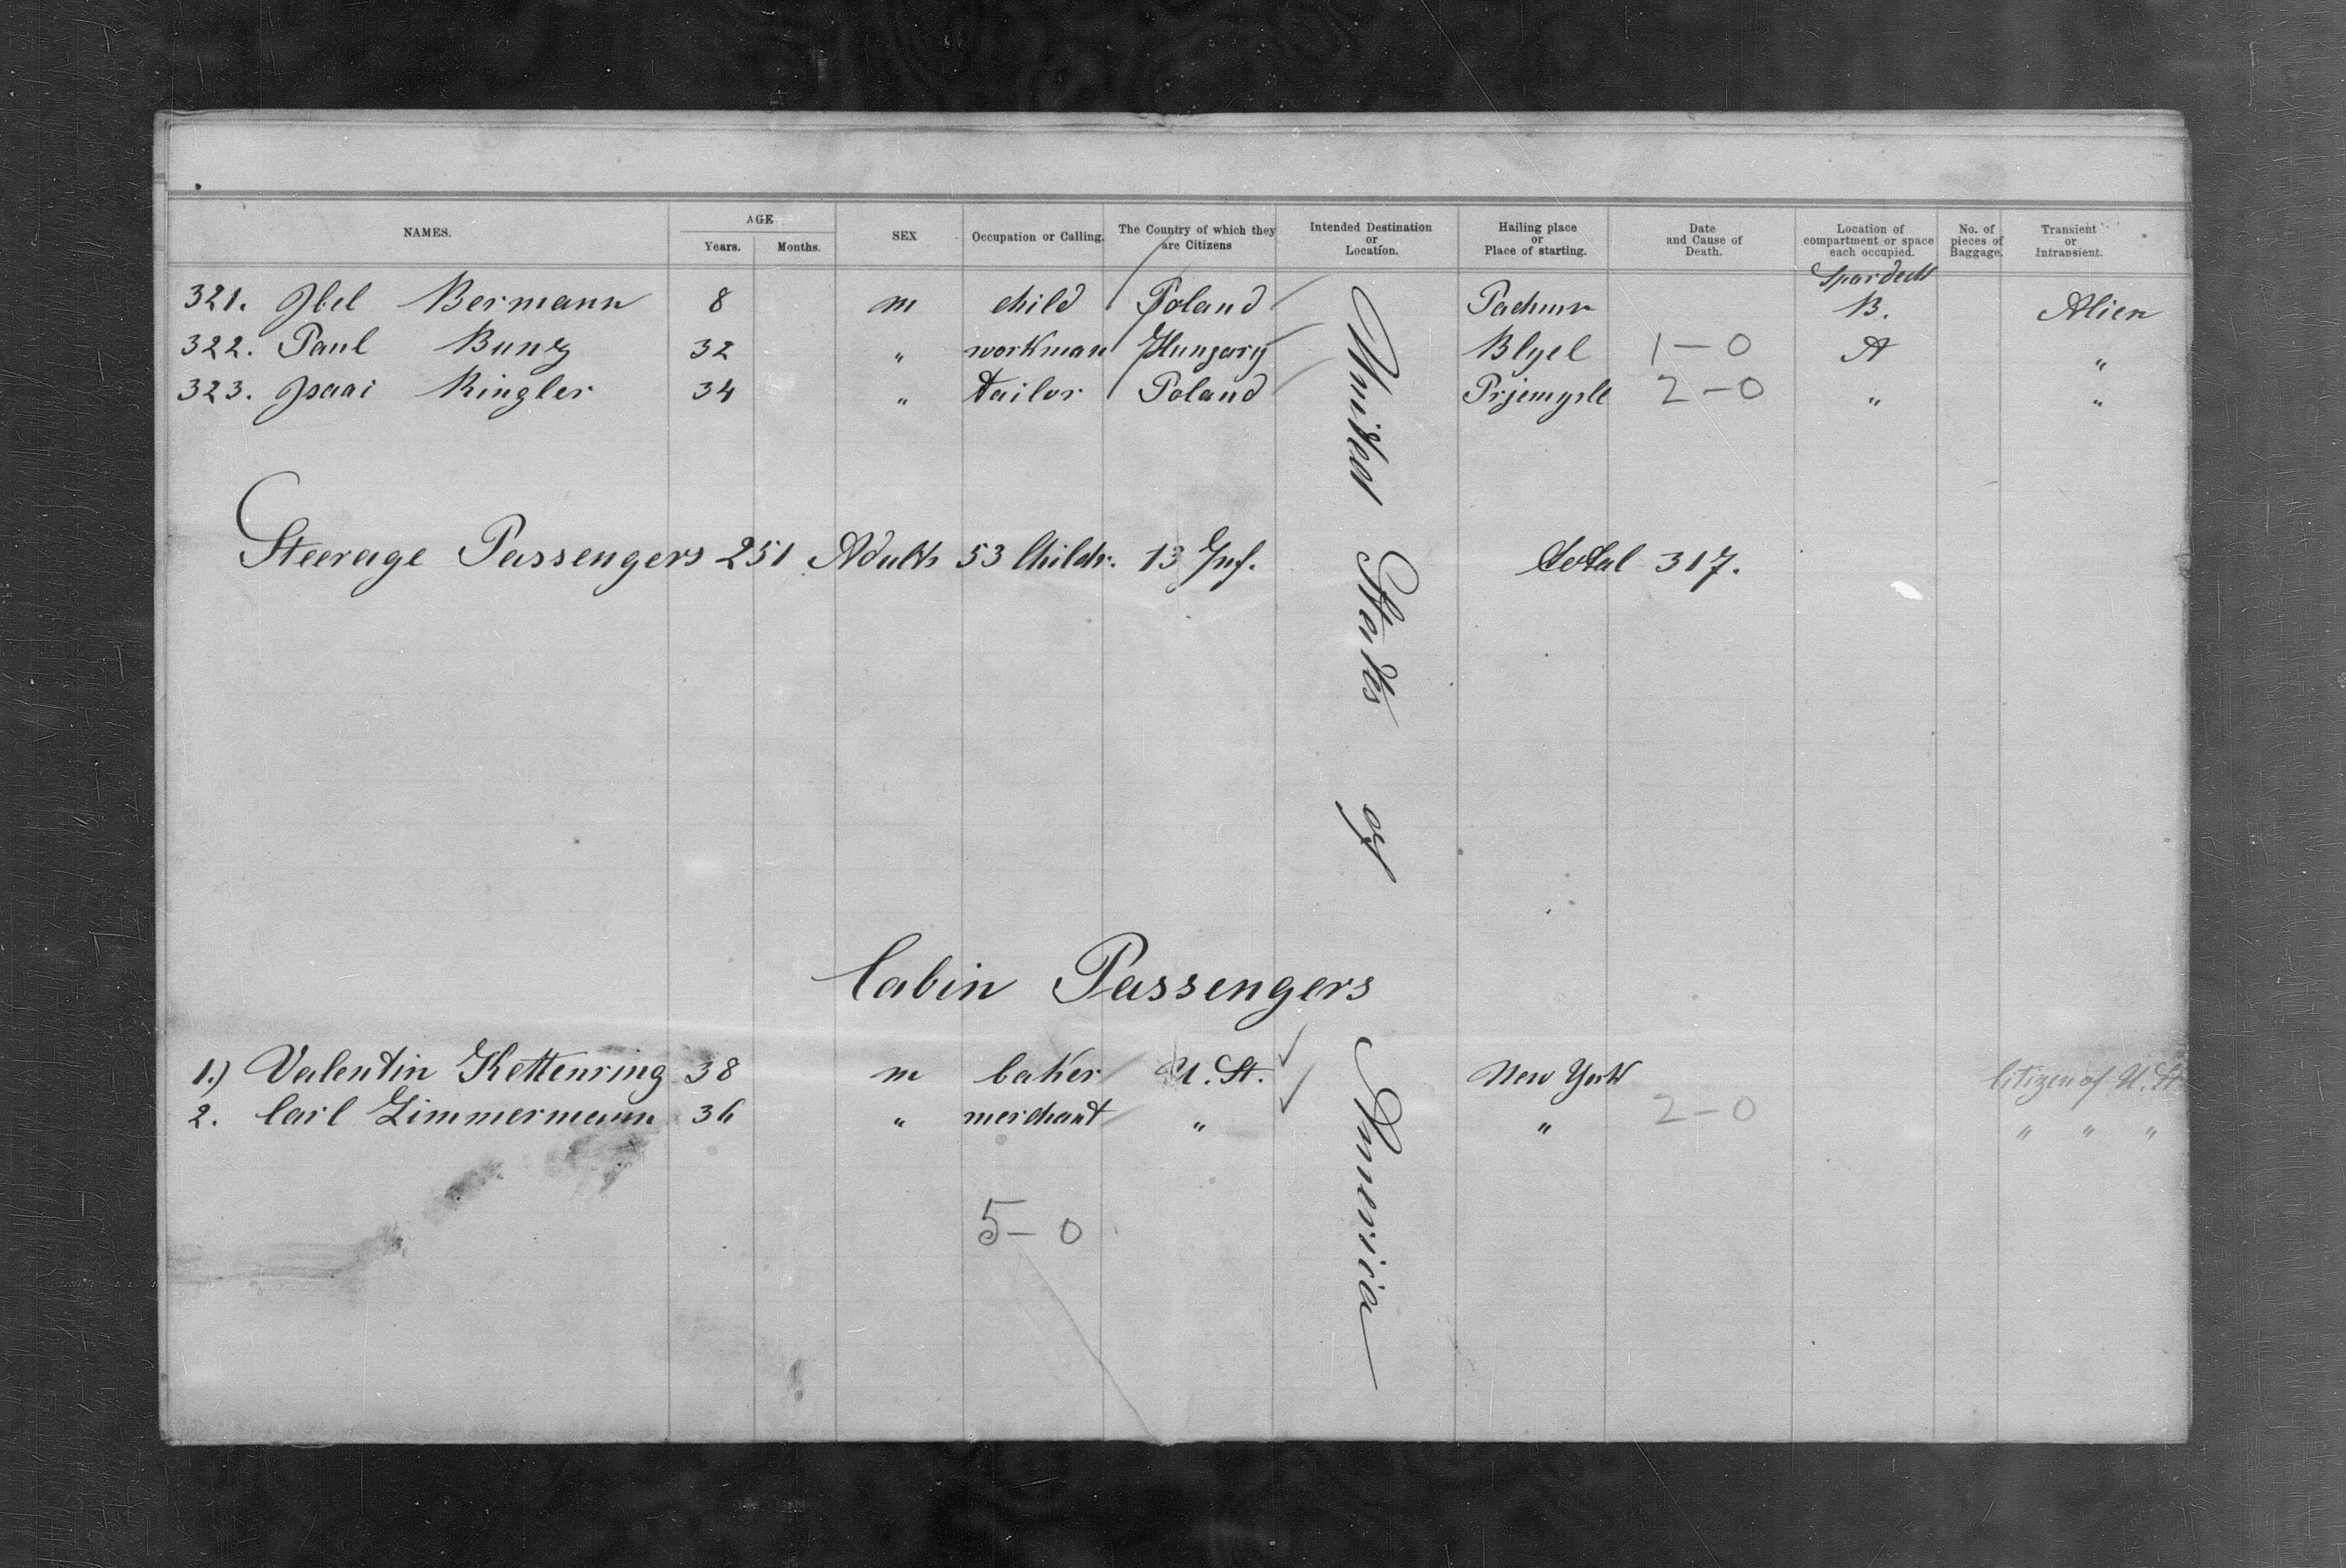 NAMES. AGE SEX Occupation or Calling. The Country of which they are Citizens Intended Destination or Location. Hailing place or Place of starting. Date and Cause of Death. Location of compartment or space each occupied. No. of pieces of Baggage. Transient or Intransient.
Years. Months.
Spardeck
321. Jbel Bermann 8 m child Poland B. Alien
322. Paul Bunz 32 " workman Hungary Blyel 1-0 A "
323. Isaac Ringler 34 " tailor Poland Prjemysll 2-0 " "
Steerage Passengers 251 Adults 53 Childr. 13 Inf. total 317.
United States of America
Cabin Passengers
1.) Valentin Kettenring 38 m baker U. St. New York Citizen of U. St.
2. Carl Zimmermann 36 " merchant " " 2-0 " " "
5-0